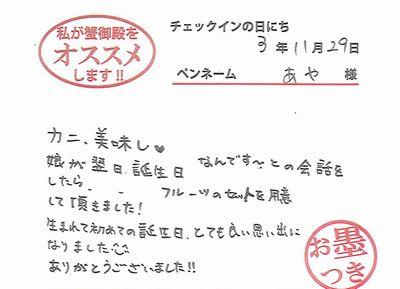 私が蟹御殿を
オススメ
します!!
チェックインの日にち
3年11月29日
ペンネーム あや 様
カニ、美味し♥
娘が翌日、誕生日 なんです〜との会話を
したら、、 フルーツのセットを用意
して頂きました!
生まれて初めての誕生日、とても良い思い出に
なりました☺
ありがとうございました!!
お墨
つき